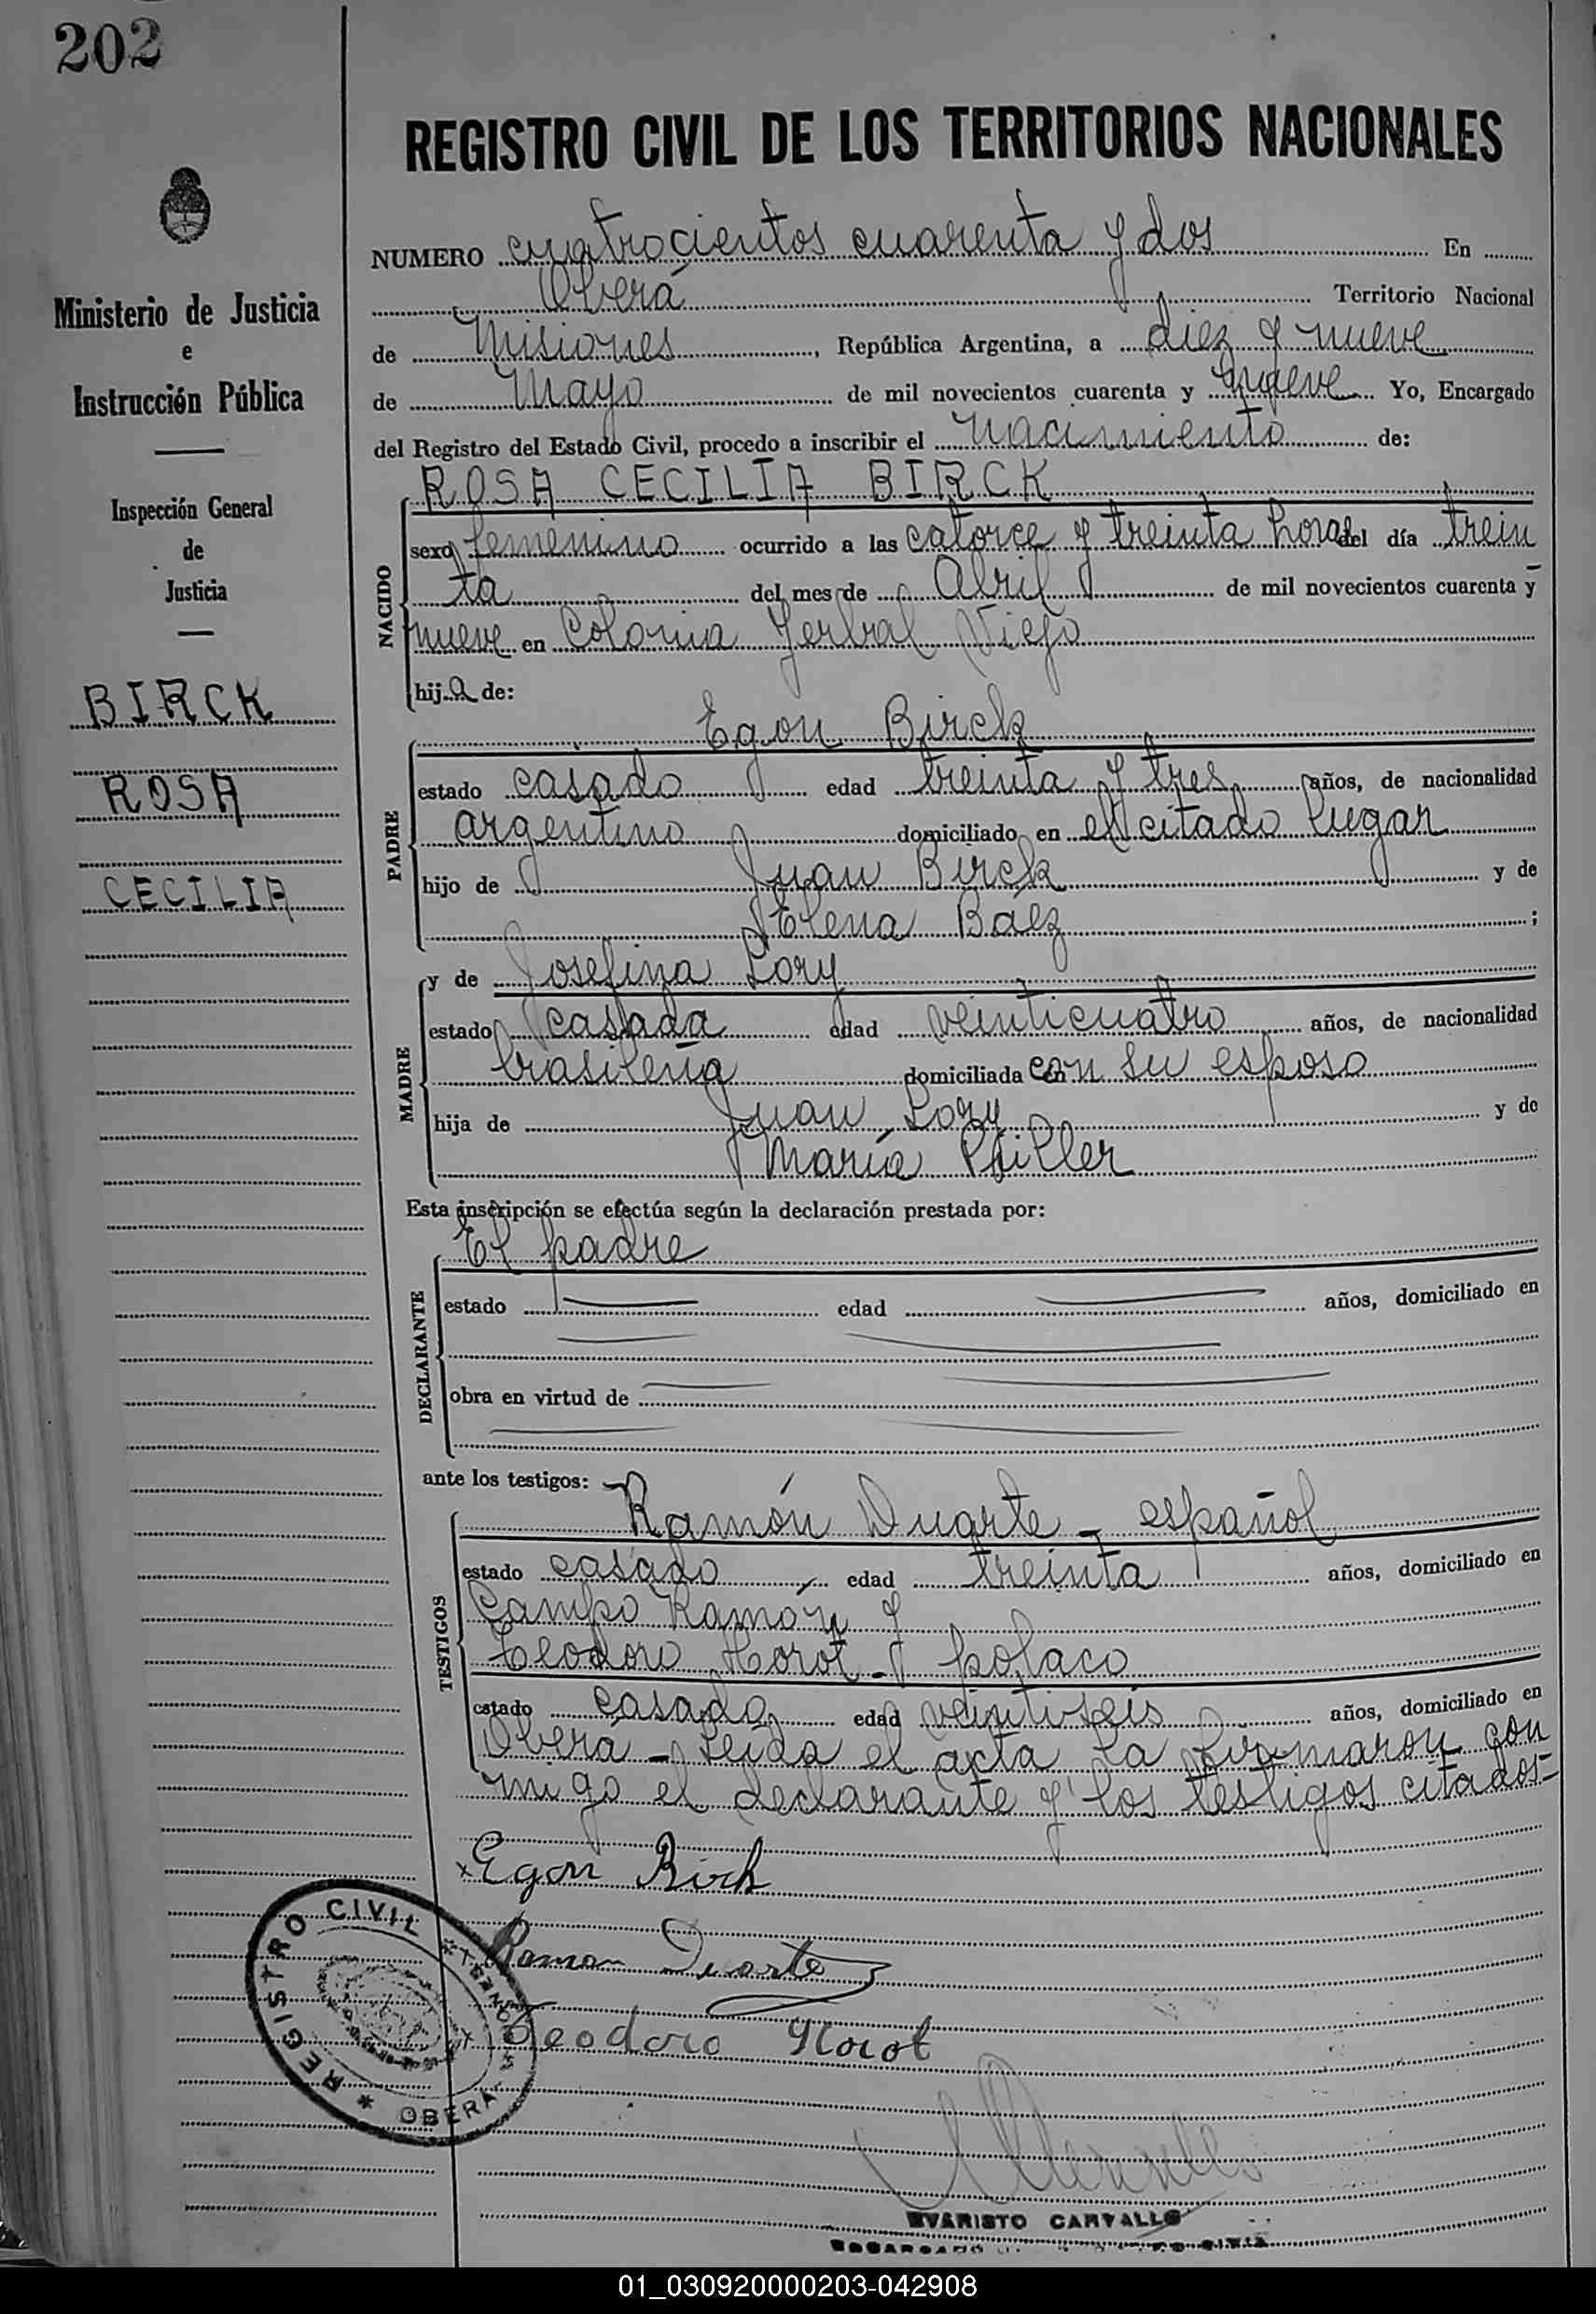 202
REGISTRO CIVIL DE LOS TERRITORIOS NACIONALES
Ministerio de Justicia
e
Instrucción Pública
Inspección General
de
Justicia
BIRCK
ROSA
CECILIA
NUMERO cuatrocientos cuarenta y dos En
Oberá Territorio Nacional
de Misiones, República Argentina, a diez y nueve
de Mayo de mil novecientos cuarenta y nueve Yo, Encargado
del Registro del Estado Civil, procedo a inscribir el nacimiento de:
NACIDO
ROSA CECILIA BIRCK
sexo femenino ocurrido a las catorce y treinta horas del día trein
ta del mes de Abril de mil novecientos cuarenta y
nueve en Colonia Yerbal Viejo
hija de:
PADRE
Egon Birck
estado casado edad treinta y tres años, de nacionalidad
argentino domiciliado en el citado lugar
hijo de Juan Birck y de
Elena Báez ;
MADRE
y de Josefina Lory
estado casada edad veinticuatro años, de nacionalidad
brasileña domiciliada en con su esposo
hija de Juan Lory y de
María
Esta inscripción se efectúa según la declaración prestada por:
DECLARANTE
El padre
estado edad años, domiciliado en
obra en virtud de
ante los testigos:
TESTIGOS
Ramón Duarte - español
estado casado edad treinta años, domiciliado en
Campo Ramón y
Teodoro Horot - polaco
estado casado edad veintiseis años, domiciliado en
Oberá - Leida el acta la firmaron con
migo el declarante y los testigos citados-
x Egon Birck
Ramon Duarte
Teodoro Horot
REGISTRO CIVIL
OBERA
EVARISTO CARVALLO
01_030920000203-042908